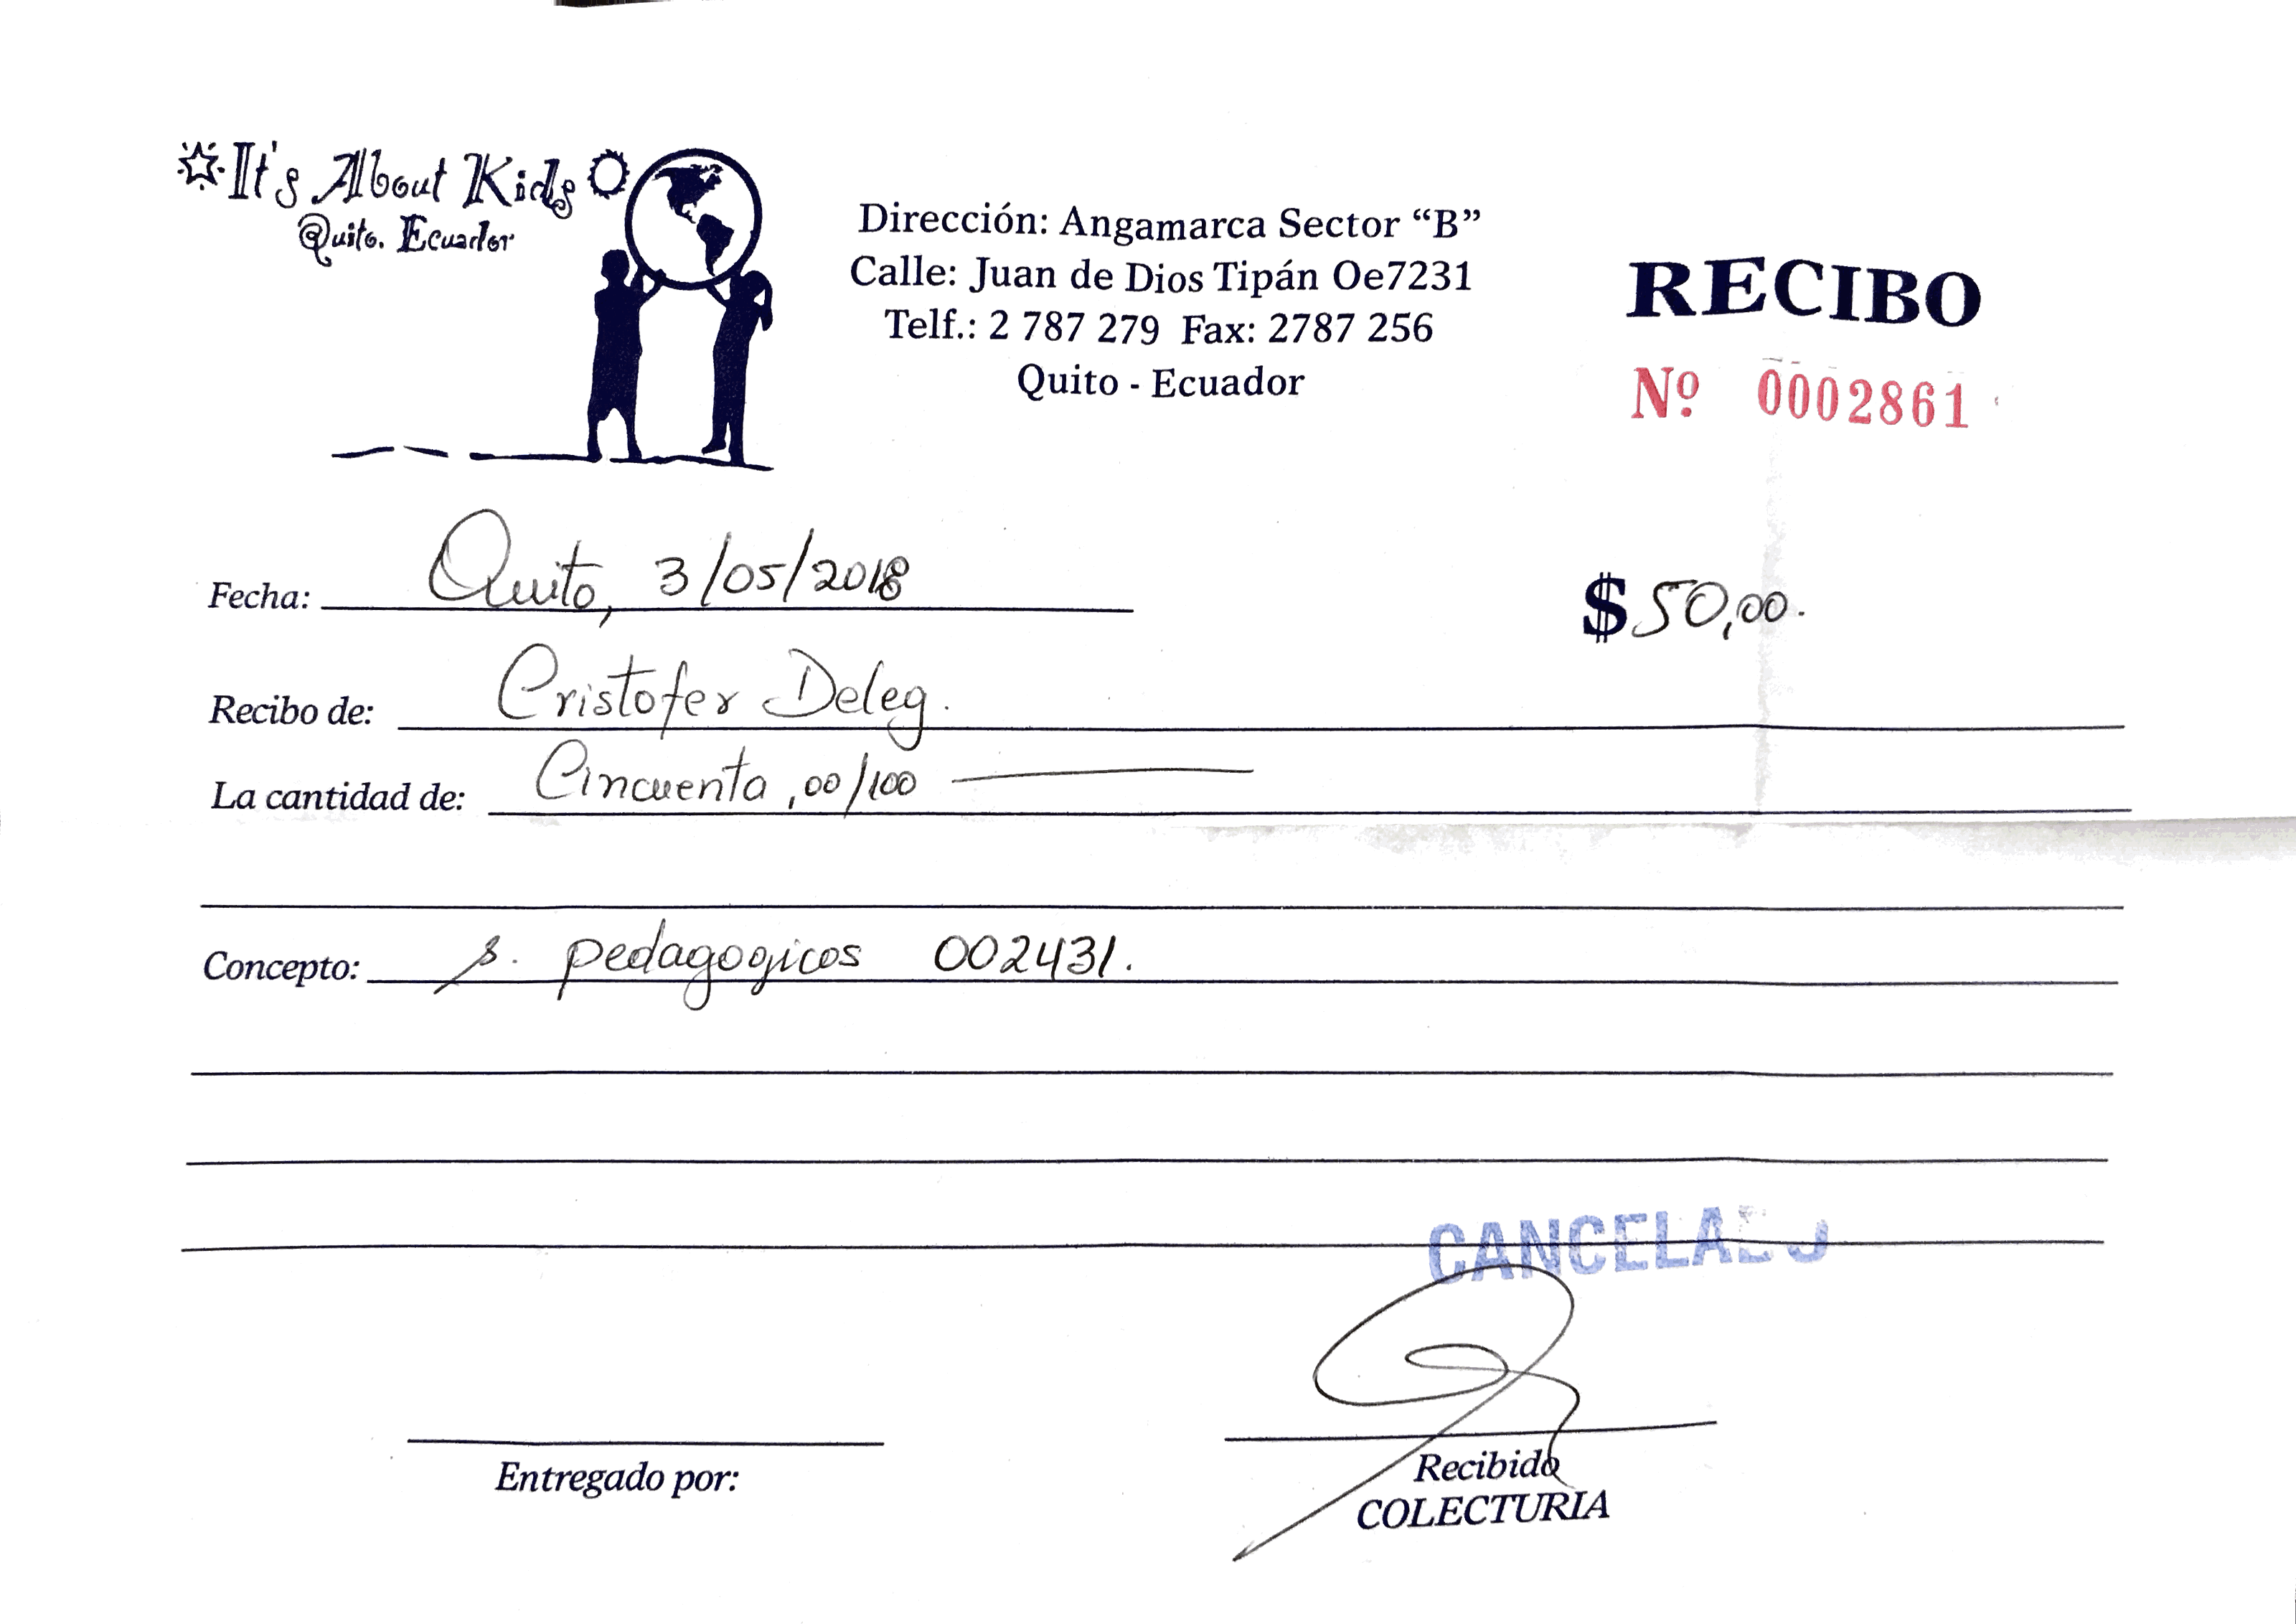 It's About Kids
Quito. Ecuador
Dirección: Angamarca Sector “B”
Calle: Juan de Dios Tipán Oe7231
Telf.: 2 787 279 Fax: 2787 256
Quito - Ecuador
RECIBO
Nº 0002861
Fecha: Quito, 3/05/2018
$ 50,00.
Recibo de: Cristofer Deleg.
La cantidad de: Cincuenta ,00/100
Concepto: s. pedagogicos 002431.
CANCELADO
Entregado por:
Recibido
COLECTURIA